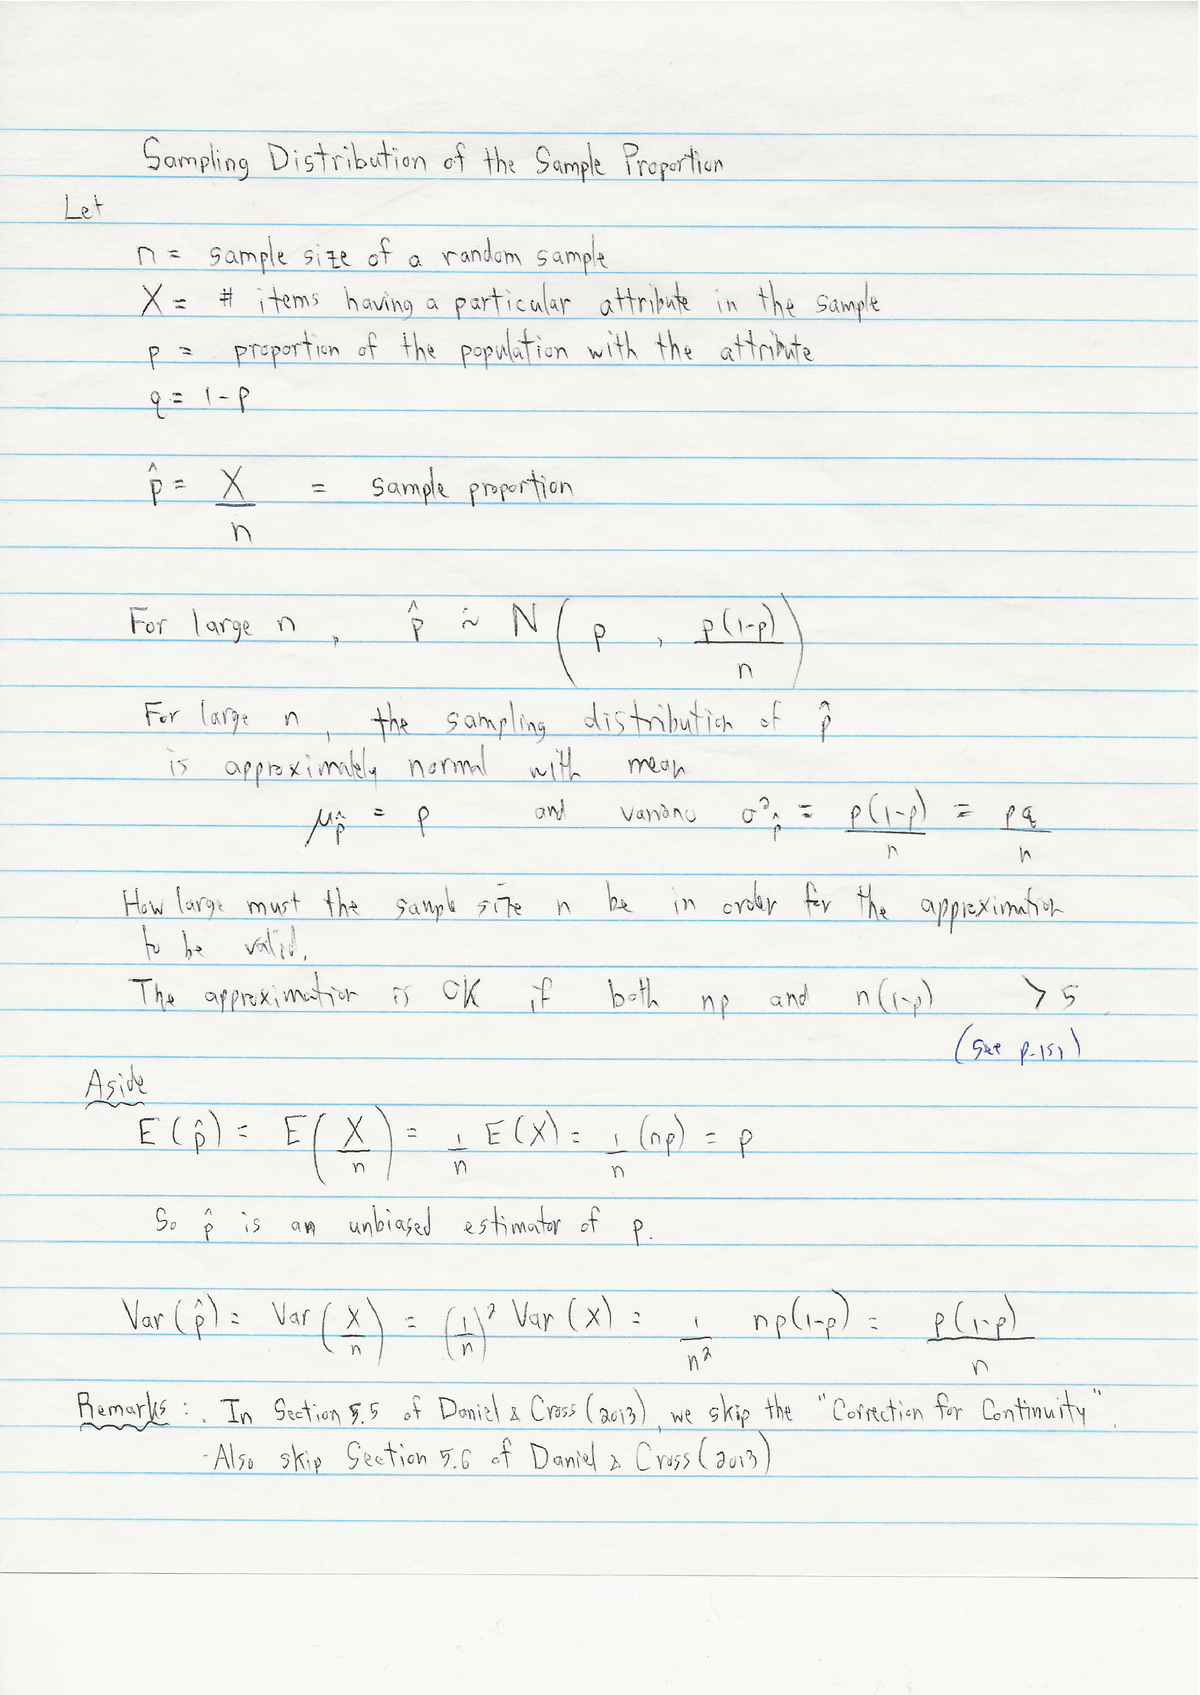 Sampling Distribution of the Sample Proportion
Let
n = sample size of a random sample
X = # items having a particular attribute in the sample
p = proportion of the population with the attribute
q = 1-p
p̂ = X/n = sample proportion
For large n, p̂ ∼̇ N(p, p(1-p)/n)
For large n, the sampling distribution of p̂
is approximately normal with mean
μp̂ = p and variance σ²p̂ = p(1-p)/n = pq/n
How large must the sample size n be in order for the approximation
to be valid.
The approximation is OK if both np and n(1-p) > 5
(see p.151)
Aside
E(p̂) = E(X/n) = 1/n E(X) = 1/n (np) = p
So p̂ is an unbiased estimator of p.
Var(p̂) = Var(X/n) = (1/n)² Var(X) = 1/n² np(1-p) = p(1-p)/n
Remarks: . In Section 5.5 of Daniel & Cross (2013), we skip the "Correction for Continuity".
- Also skip Section 5.6 of Daniel & Cross (2013)